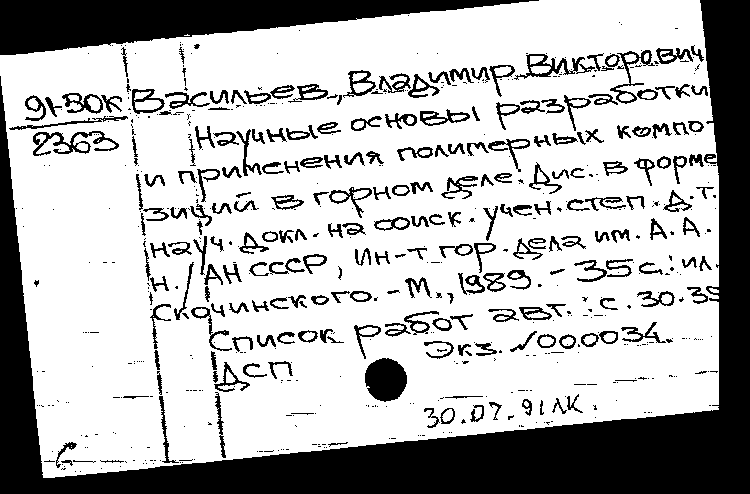 91-80к Васильев, Владимир Викторович
2363
Научные основы разработки
и применения полимерных компо-
зиций в горном деле: Дис. в форме
науч. докл. на соиск. учен. степ. д.т.
н. / АН СССР, Ин-т гор. дела им. А. А.
Скочинского. - М., 1989. - 35 с.: ил.
Список работ авт.: с. 30-35
Экз. №000034.
ДСП
30.07.91 ЛК.